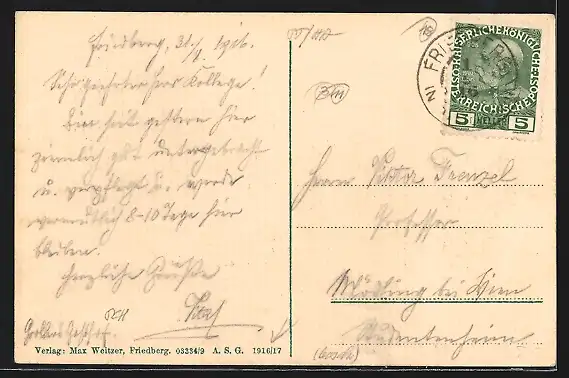 Friedberg, 31./V. 1916.
Sehr geehrter Herr Kollege!
Bin seit gestern hier
ziemlich gut untergebracht
u. verpflegt u. werde
vermutlich 8-10 Tage hier
bleiben.
Herzliche Grüße
Verlag: Max Weitzer, Friedberg. 03234/9 A. S. G. 1916/17
FRIE
KAISERLICHE KÖNIGLICHE
ÖSTERREICHISCHE
5 HELLER 5
Herrn Viktor Frenzel
Professor
Mödling bei Wien
Studentenheim